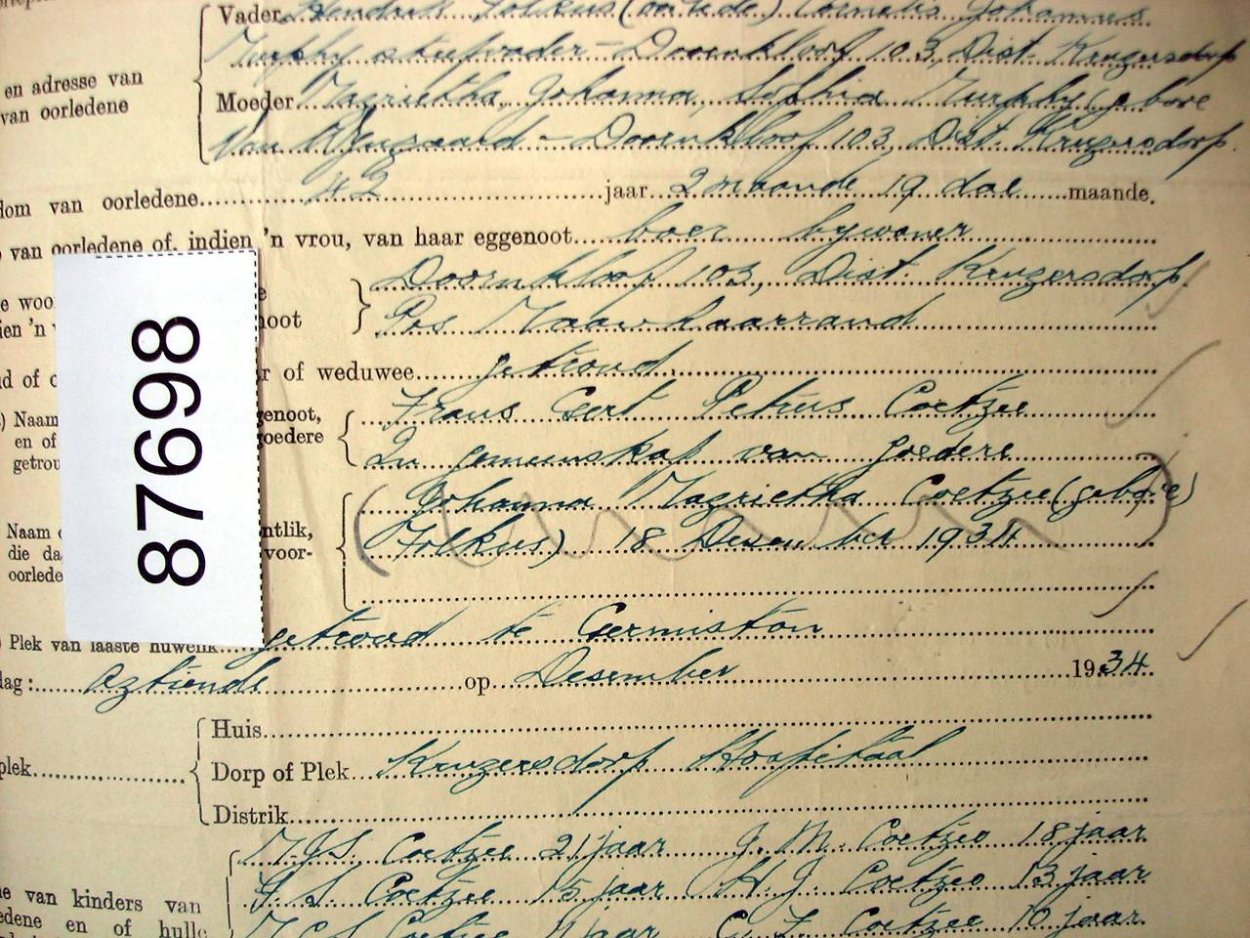 Vader Hendrik Folkus (oorlede) Cornelis Johannes
Murphy stiefvader - Doornkloof 103, Dist. Krugersdorp
en adresse van
van oorledene
Moeder Magrietha Johanna Sophia Murphy (gebore
Van Wyngaard - Doornkloof 103, Dist. Krugersdorp.
dom van oorledene 42 jaar 2 maande 19 dae maande.
van oorledene of, indien 'n vrou, van haar eggenoot boer bywoner
Doornkloof 103, Dist. Krugersdorp.
e woo
ien 'n
noot
Pos Maawhaarrand
id of r of weduwee getroud.
Naam genoot, Frans Gert Petrus Coetzee
en of goedere In gemeenskap van goedere
getrou
Johanna Magrietha Coetzee (gebore)
Naam ntlik, Folkus) 18 Desember 1934
die da voor-
oorlede
87698
Plek van laaste huwelik getroud te Germiston
dag: agtiende op Desember 1934.
Huis
plek Dorp of Plek Krugersdorp Hospitaal
Distrik
M.J.S. Coetzee 21 jaar J. M. Coetzee 18 jaar
S. S. Coetzee 15 jaar H. J. Coetzee 13 jaar
e van kinders van
edene en of hulle
Coetzee 11 jaar C. F. Coetzee 10 jaar